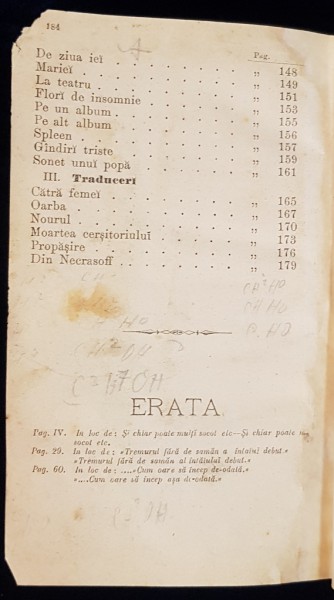 184
Pag.
De ziua ieĭ . . . . . . . . . „ 148
Marieĭ . . . . . . . . . „ 149
La teatru . . . . . . . . . „ 151
Florĭ de insomnie . . . . . . . . „ 153
Pe un album . . . . . . . . . „ 155
Pe alt album . . . . . . . . „ 156
Spleen . . . . . . . . . „ 157
Gîndirĭ triste . . . . . . . . „ 159
Sonet unuĭ popă . . . . . . . . „ 161
III. Traducerĭ
Cătră femeĭ . . . . . . . . „ 165
Oarba . . . . . . . . . „ 167
Nourul . . . . . . . . . „ 170
Moartea cerșitoriuluĭ . . . . . . „ 173
Propășire . . . . . . . . „ 176
Din Necrasoff . . . . . . . . „ 179
CH²HO
HO
C²H⁷OH
ERATA
Pag. IV. In loc de: Și chiar poate mulțĭ socot etc—Și chiar poate
socot etc.
Pag. 29. In loc de: «Tremurul fără de samăn a întăini debut.»
«Tremurul fără de samăn al întăiuluĭ debut.»
Pag. 60. In loc de: ....«Cum oare să încep de-odată.»
«....Cum oare să încep așa de-odată.»